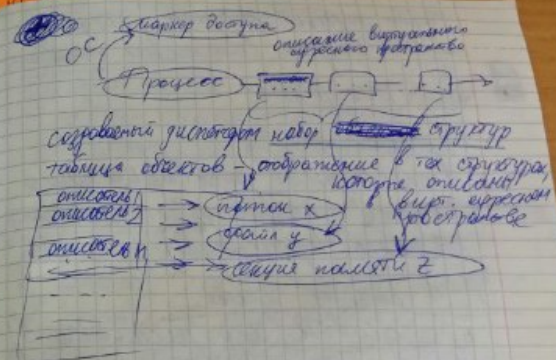 маркер доступа
ОС
описание виртуального
адресного пространства
Процесс
создаваемый диспетчером набор структур
таблица объектов – отображение в тех структурах,
которые описаны
вирт. адресном
пространстве
описатель 1
описатель 2
описатель n
поток x
файл y
секция памяти z